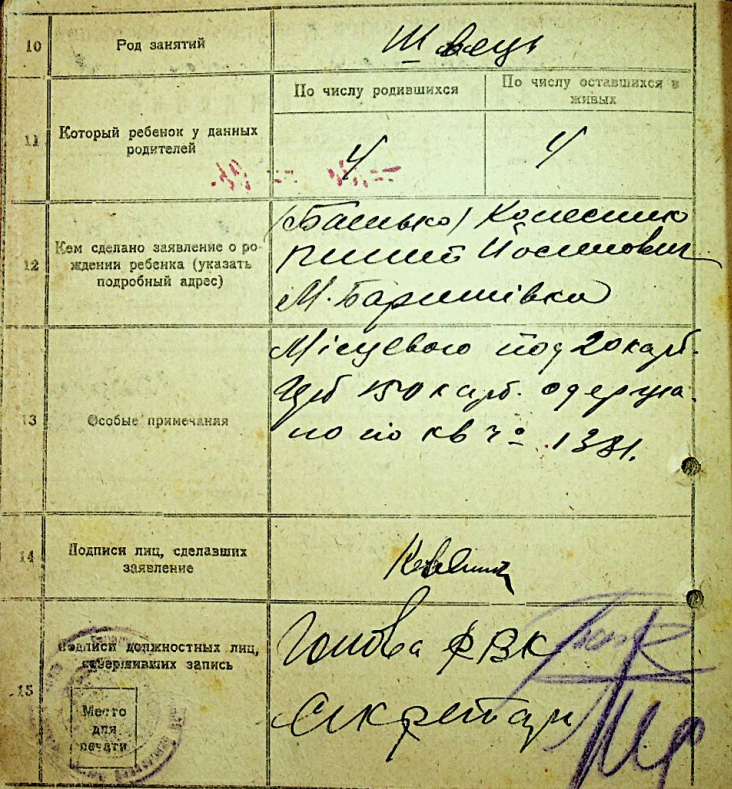 10 Род занятий Швець
11 Который ребенок у данных родителей
По числу родившихся
По числу оставшихся в живых
4 4
12 Кем сделано заявление о рождении ребенка (указать подробный адрес)
/Батько/ Колесник
Йосипович
М. Баришівка
13 Особые примечания
Місцевого под 20 карб.
150 карб. одержа-
но по кв № 1381.
14 Подписи лиц, сделавших заявление
15 Подписи должностных лиц, совершивших запись
Голова РВК
Секретар
Место
для
печати